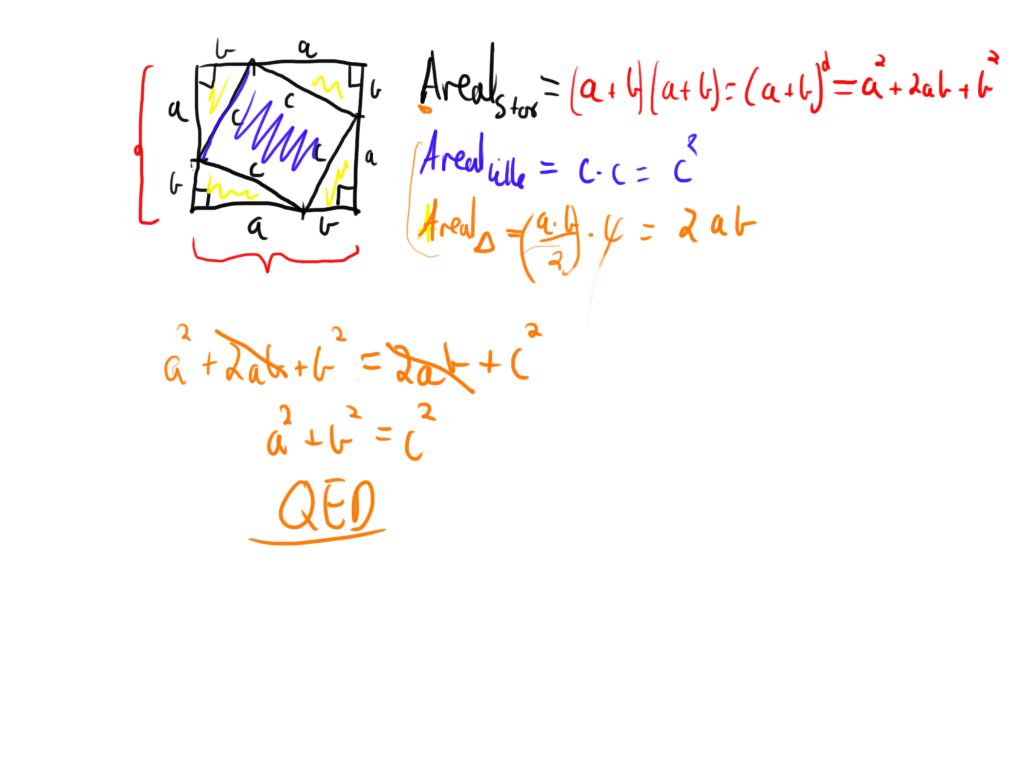 b a
a c b
c c a
b c
a b
Areal_Stor = (a+b)(a+b) = (a+b)² = a² + 2ab + b²
Areal_lille = c·c = c²
Areal_Δ = (a·b/2)·4 = 2ab
a² + 2ab + b² = 2ab + c²
a² + b² = c²
QED